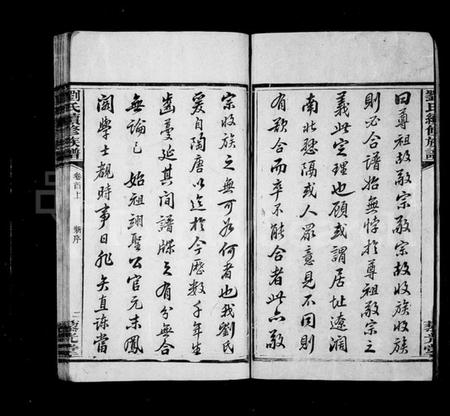 曰尊祖故敬宗敬宗故收族
則必合譜始無悖於尊祖敬宗之
義此定理也顧或謂居址遼濶
南北懸隔或人眾意見不同則
有欲合而卒不能合者此亦敬
宗收族之無可如何者也我劉氏
爰自陶唐以迄於今歷數千年生
齒蔓延其間譜牒之有分無合
無論已 始祖翊聖公官元末鳳
閣學士覩時事日非矢直諫當
劉氏續修族譜
卷首上
新序
二
藜光堂
劉氏續修族譜
藜光堂